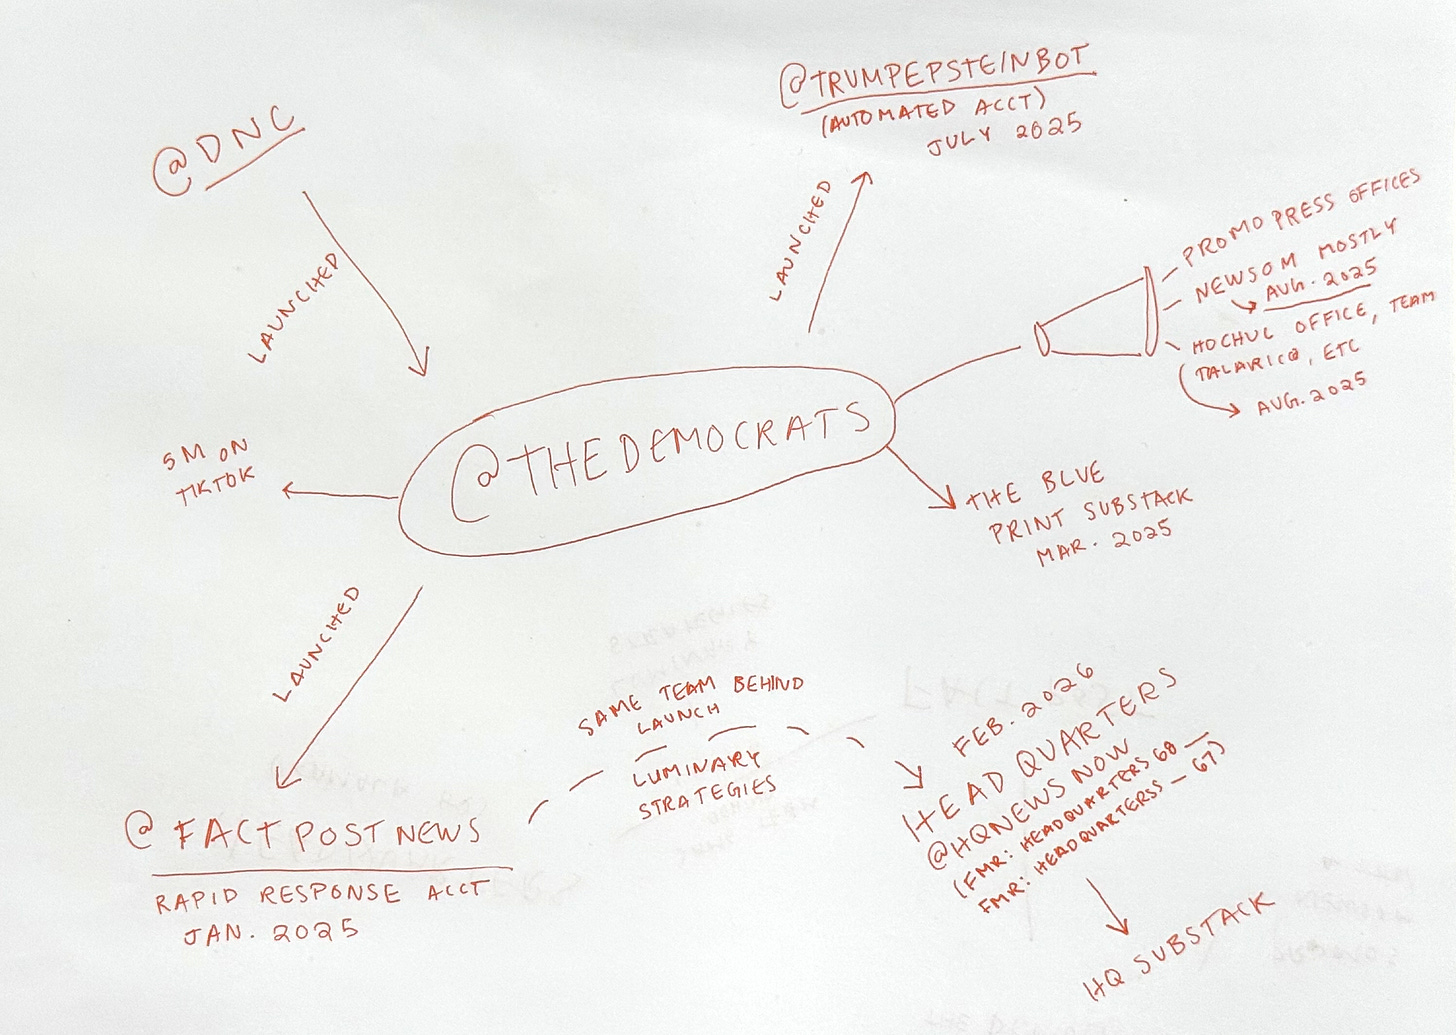 @TRUMPEPSTEINBOT
(AUTOMATED ACCT)
JULY 2025
@DNC
LAUNCHED
LAUNCHED
PROMO PRESS OFFICES
NEWSOM MOSTLY
AUG. 2025
HOCHUL OFFICE, TEAM
TALARICO, ETC
AUG. 2025
@THEDEMOCRATS
5M ON
TIKTOK
THE BLUE
PRINT SUBSTACK
MAR. 2025
LAUNCHED
SAME TEAM BEHIND
LAUNCH
LUMINARY
STRATEGIES
@FACTPOSTNEWS
RAPID RESPONSE ACCT
JAN. 2025
FEB. 2026
HEAD QUARTERS
@HQNEWS NOW
(FMR: HEADQUARTERS 68_
FMR: HEADQUARTERSS_67)
HQ SUBSTACK